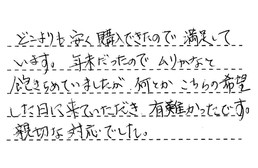 どこよりも安く購入できたので満足して
います。年末だったのでムリかなと
飽きらめていましたが、何とかこちらの希望
した日に来ていただき、有難かったです。
親切な対応でした。